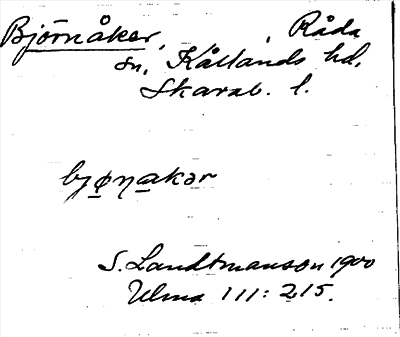 Björnåker, , Råda
sn, Kållands hd.
Skarab. l.
byønakər
S. Landtmanson 1900
Ulma 111: 215.